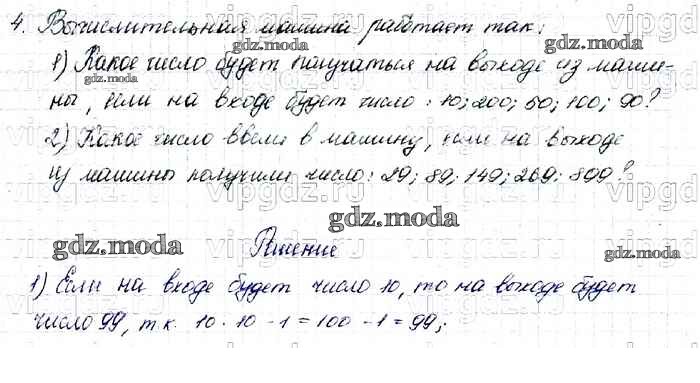 4. Вычислительная машина работает так:
1) Какое число будет получаться на выходе из маши-
ны, если на входе будет число: 10; 200; 50; 100; 90?
2) Какое число ввели в машину, если на выходе
из машины получили число: 29; 89; 149; 269; 899?
Решение
1) Если на входе будет число 10, то на выходе будет
число 99, т.к. 10 · 10 - 1 = 100 - 1 = 99;
gdz.moda
gdz.moda
gdz.moda
gdz.moda
gdz.moda
gdz.moda
gdz.moda
vipgdz.ru